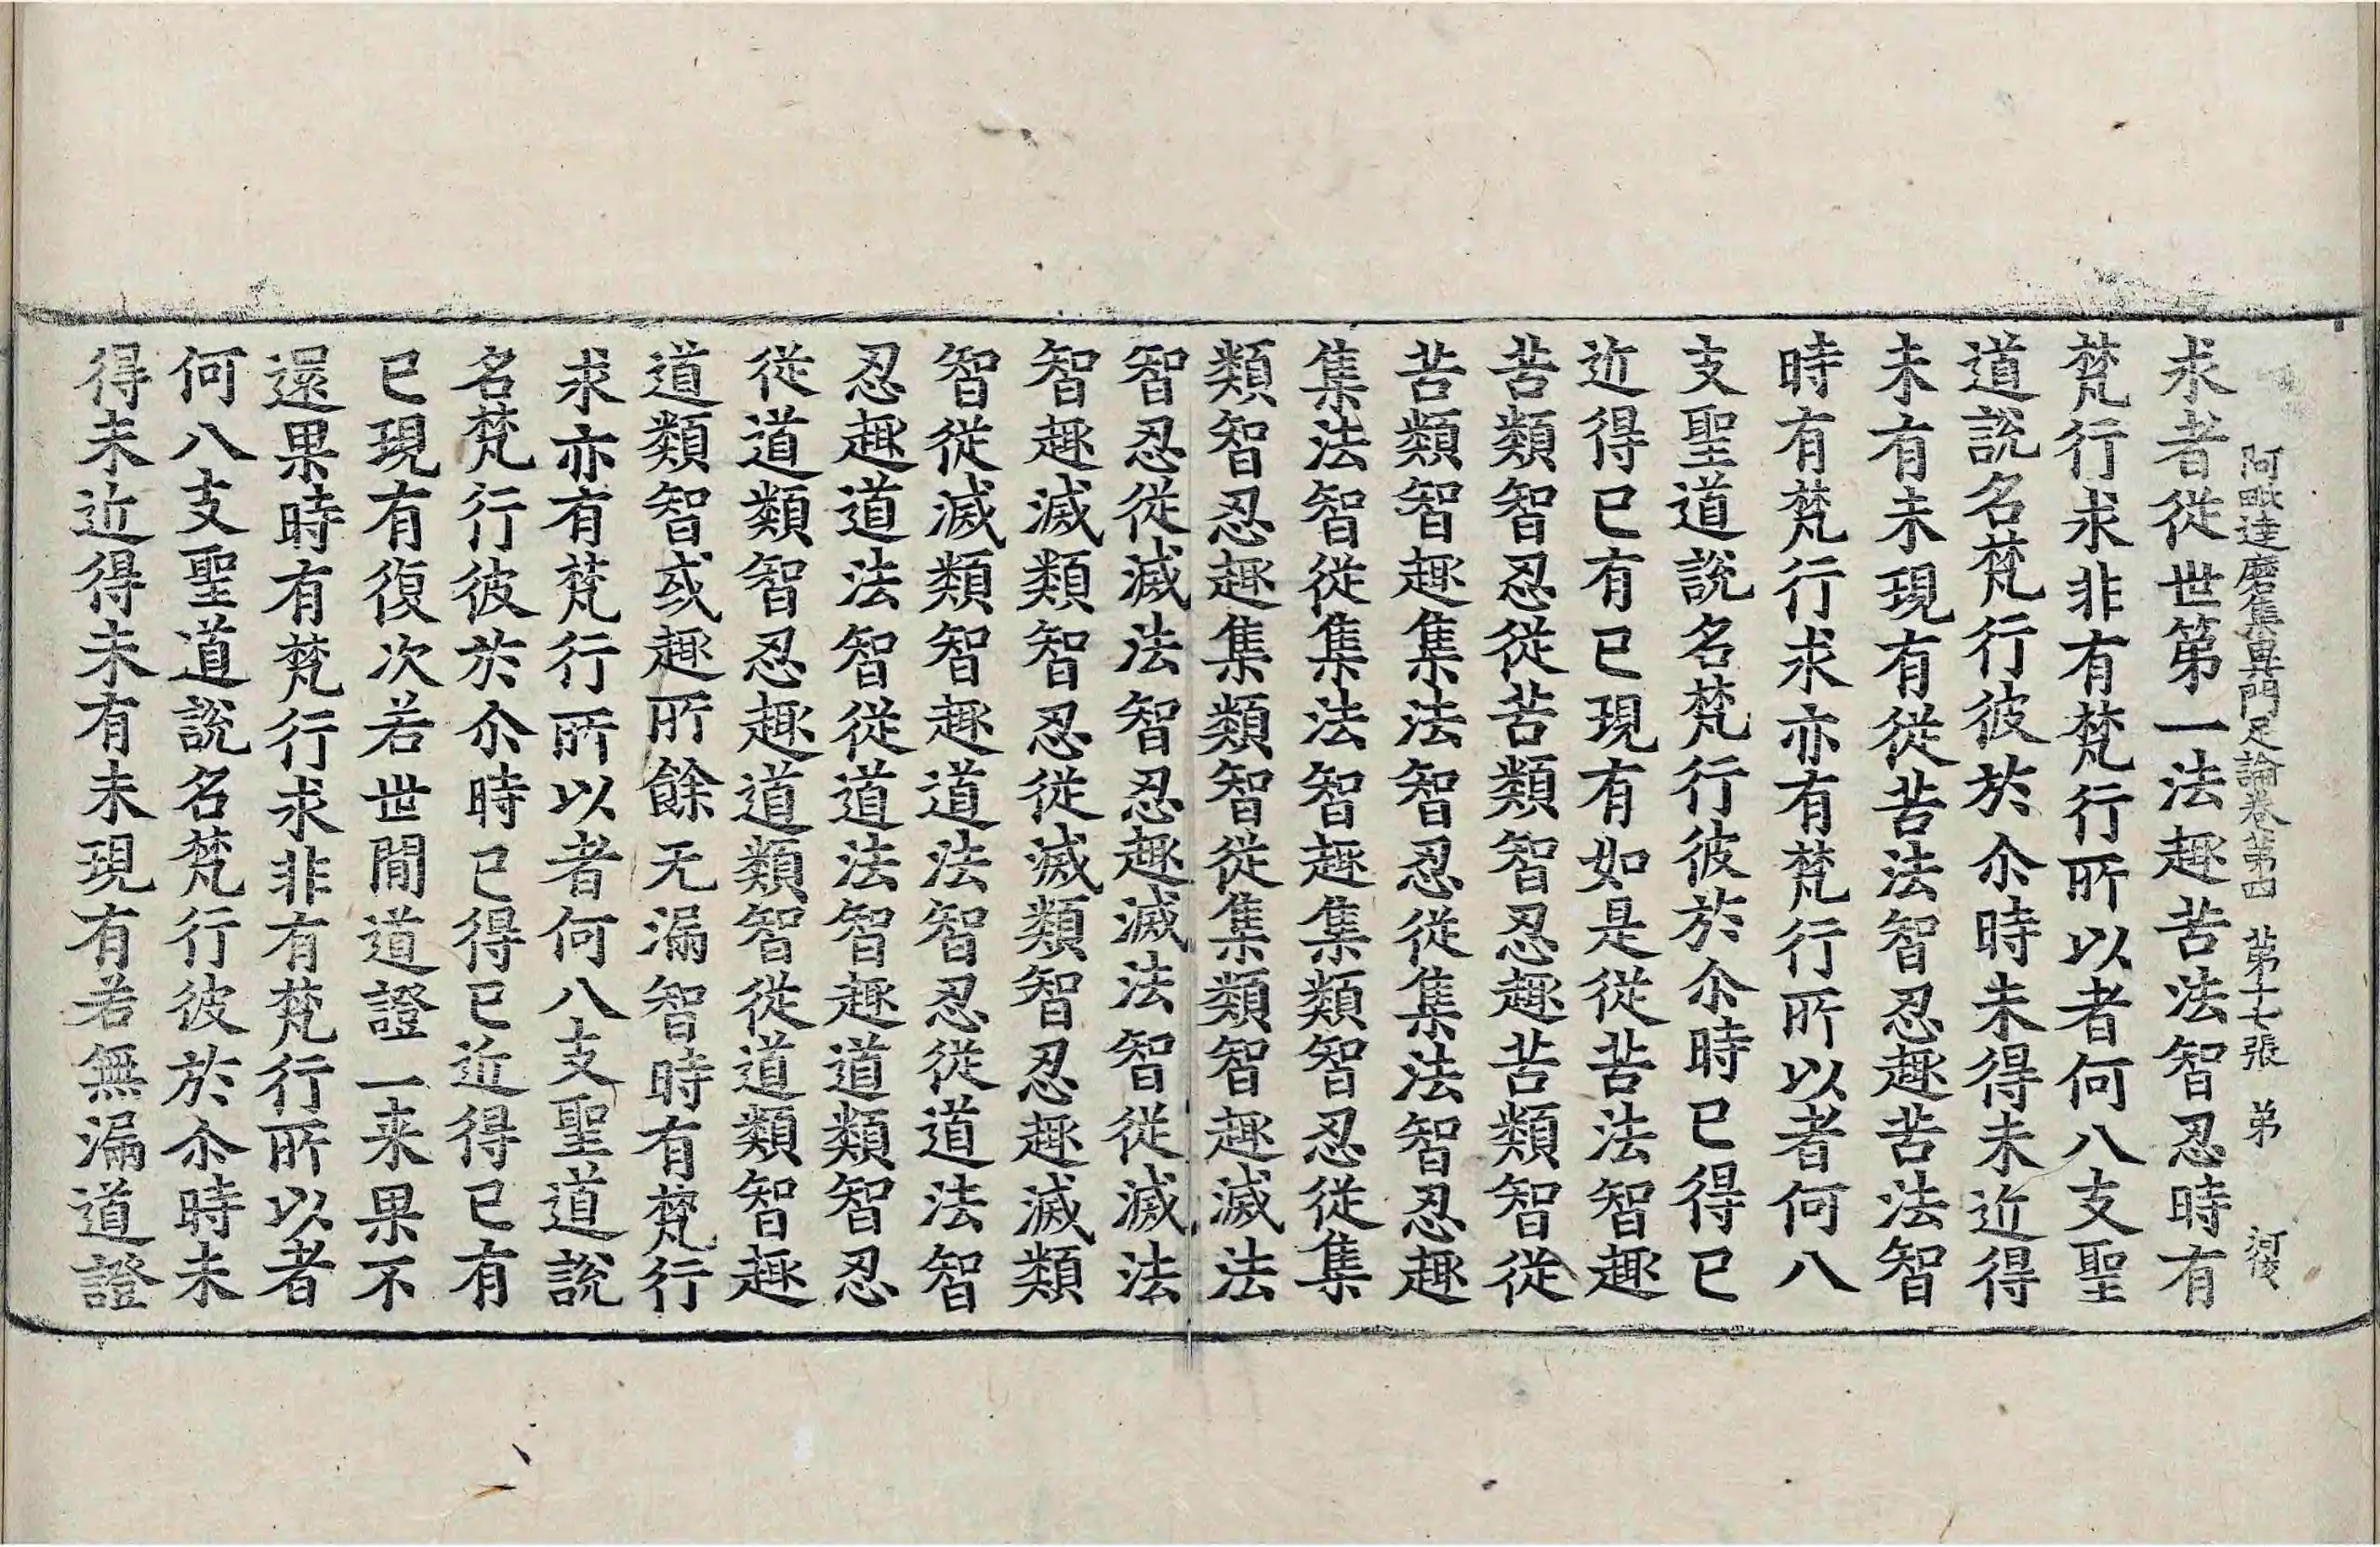 阿毗達磨集異門足論卷第四　第十七張　弟
求者從世第一法趣苦法智忍時有
梵行求非有梵行所以者何八支聖
道說名梵行彼於尒時未得未近得
未有未現有從苦法智忍趣苦法智
時有梵行求亦有梵行所以者何八
支聖道說名梵行彼於尒時已得已
近得已有已現有如是從苦法智趣
苦類智忍從苦類智忍趣苦類智從
苦類智趣集法智忍從集法智忍趣
集法智從集法智趣集類智忍從集
類智忍趣集類智從集類智趣滅法
智忍從滅法智忍趣滅法智從滅法
智趣滅類智忍從滅類智忍趣滅類
智從滅類智趣道法智忍從道法智
忍趣道法智從道法智趣道類智忍
從道類智忍趣道類智從道類智趣
道類智或趣所餘无漏智時有梵行
求亦有梵行所以者何八支聖道說
名梵行彼於尒時已得已近得已有
已現有復次若世間道證一来果不
還果時有梵行求非有梵行所以者
何八支聖道說名梵行彼於尒時未
得未近得未有未現有若無漏道證